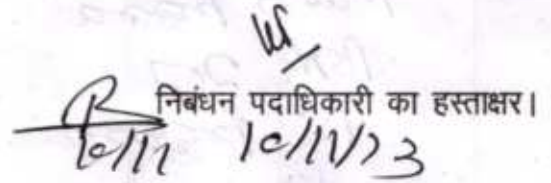 निबंधन पदाधिकारी का हस्ताक्षर।
10/11 10/11/23